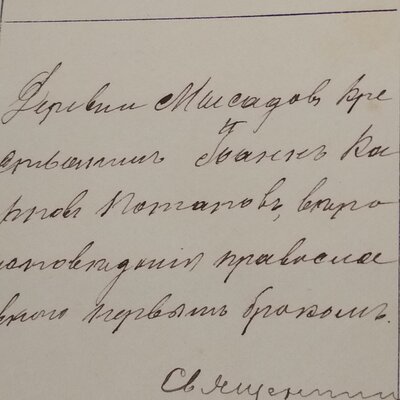 Деревни Масадовъ кре
стьянинъ Іоаннъ Ка
рповъ Потаповъ, вѣро
исповѣданія правосла
внаго первымъ бракомъ.
Священни